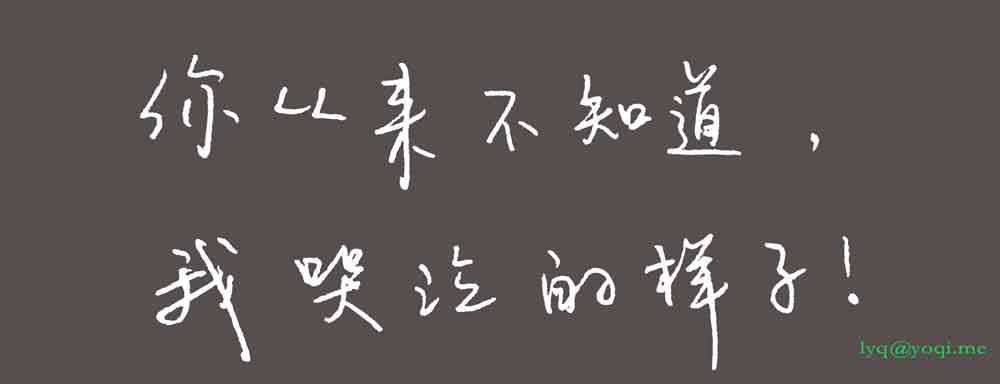 你从来不知道,
我哭泣的样子!
lyq@yoqi.me